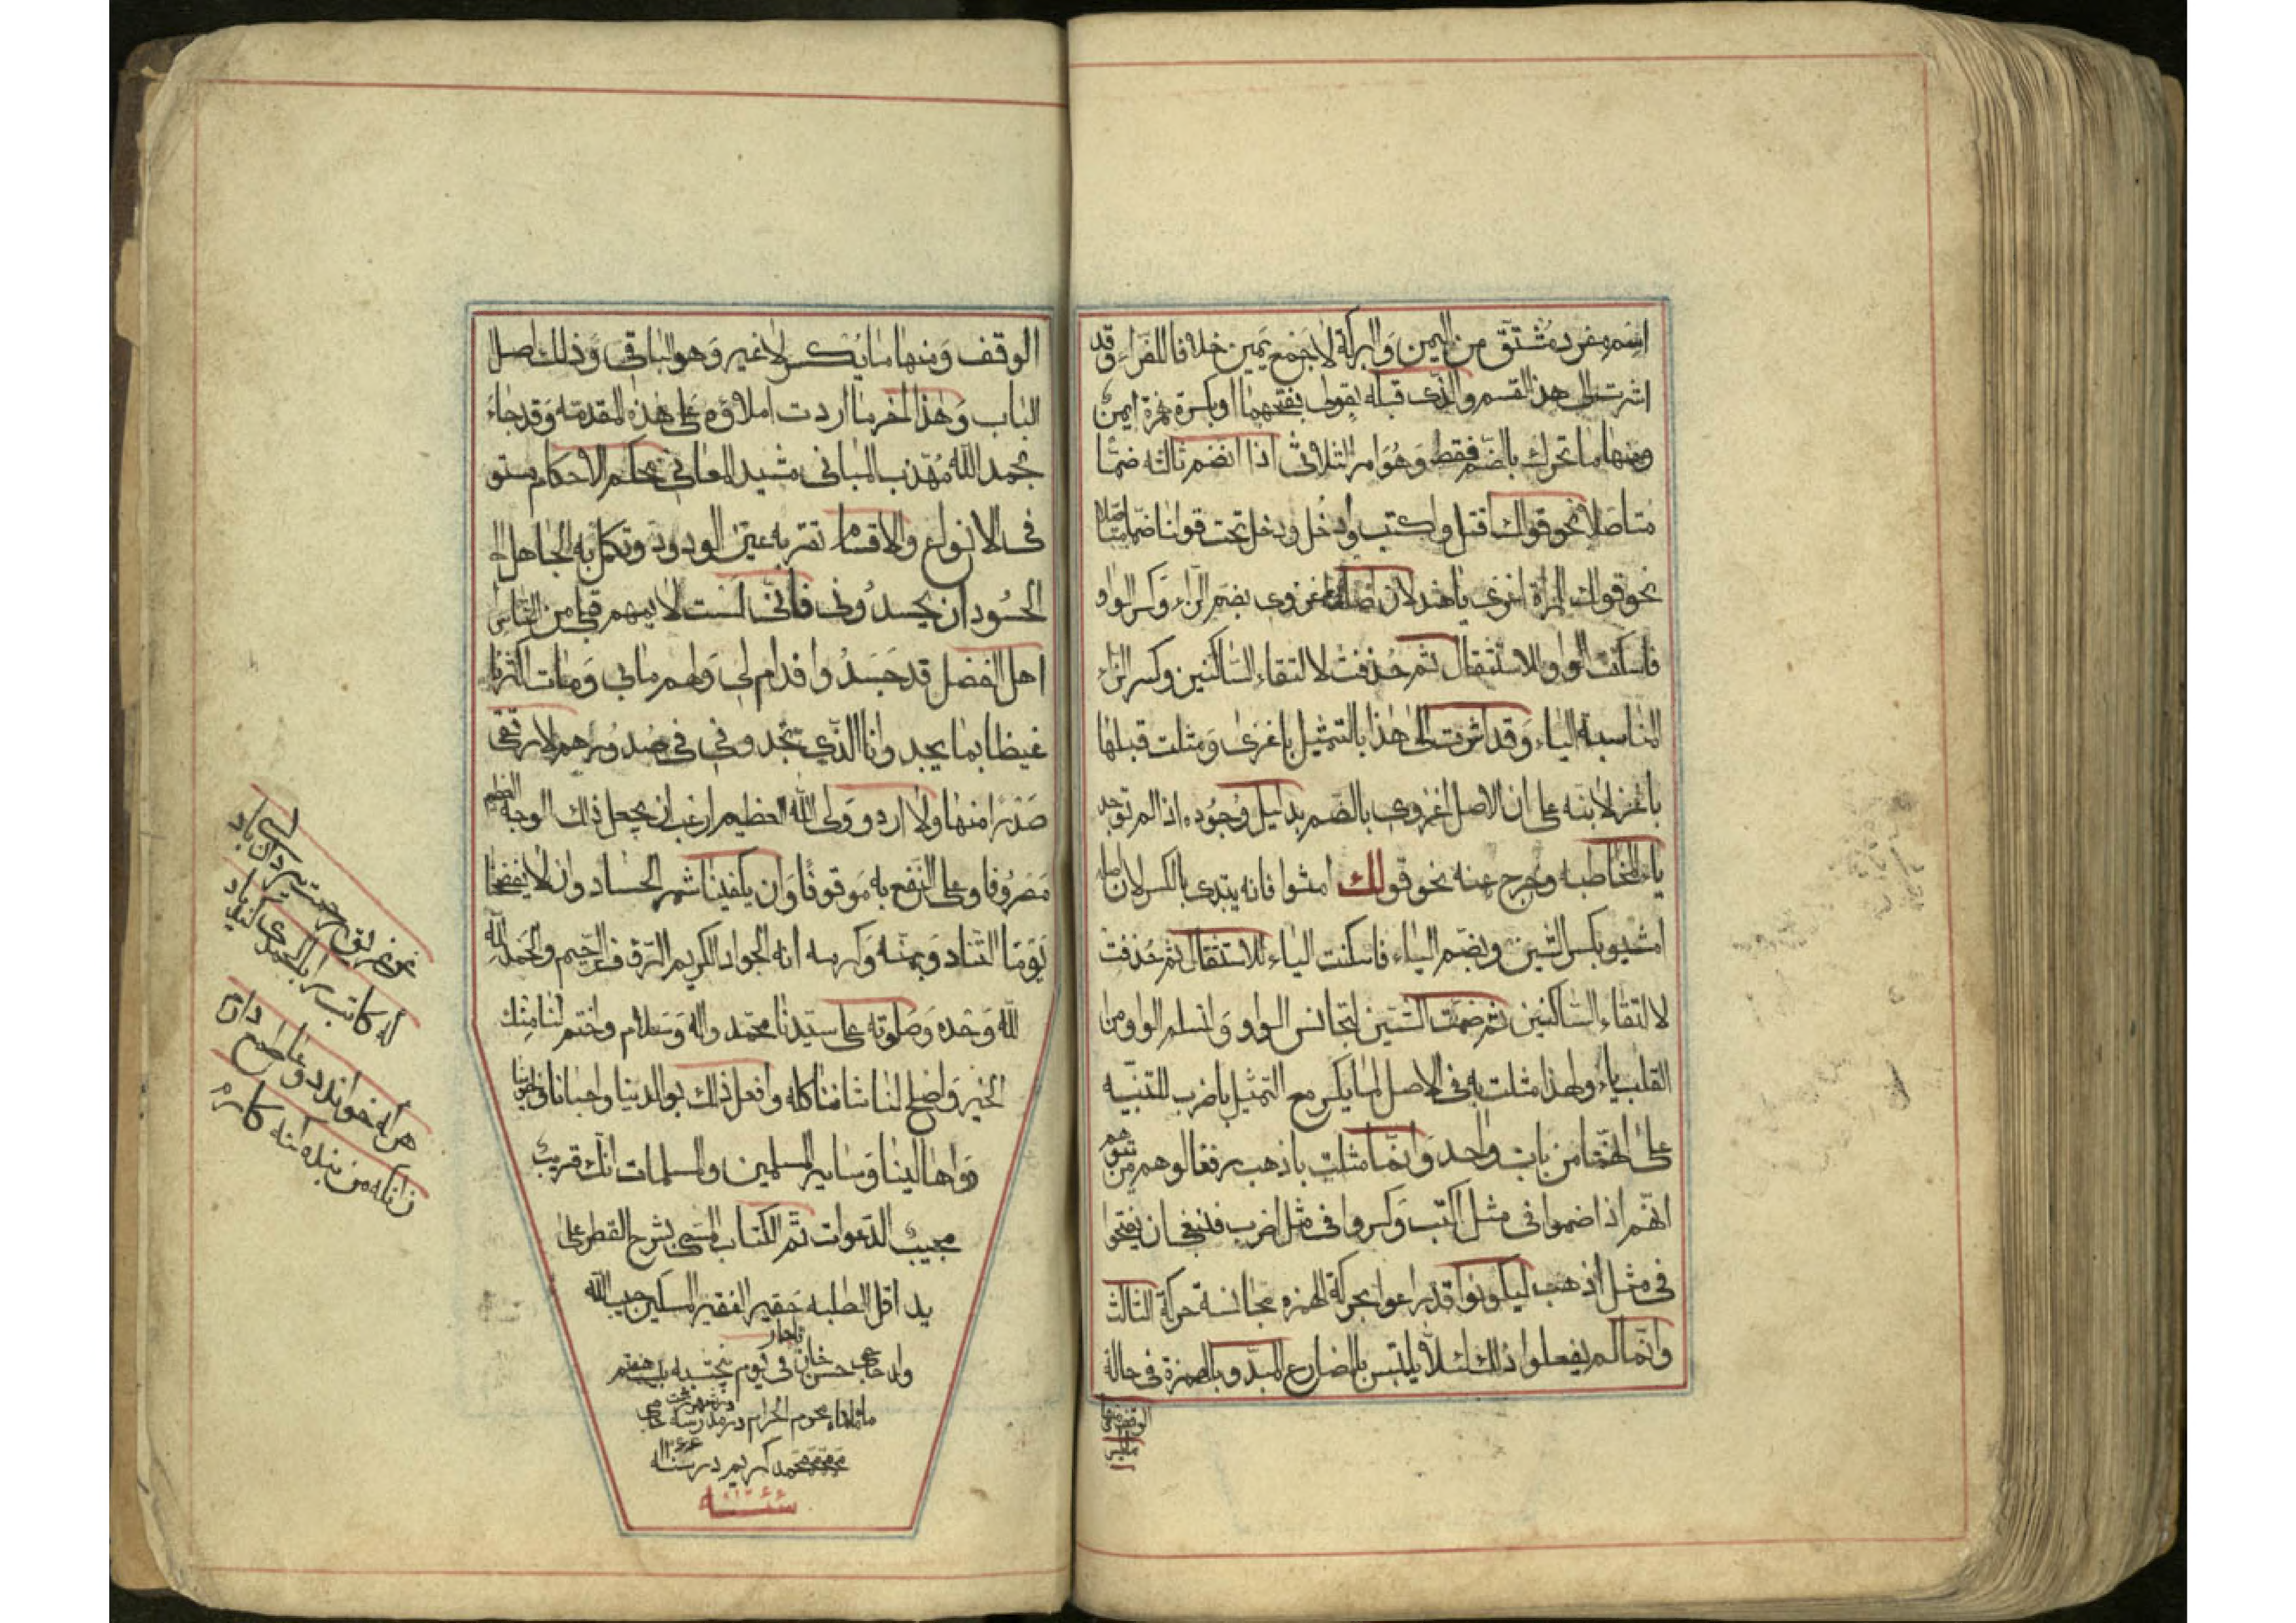 اسم مفرد مشتق من اليمن والبركة لا جمع يمين خلافا للفراء وقد
اشرت الى هذا القسم والذى قبله بقولى بفتحهما او بكسرة همزة ايمن
ومنها ما تحرك بالضم فقط وهو امر الثلاثى اذا انضم ثالثه ضما
متاصلا نحو قولك اقتل واكتب وادخل ودخل تحت قولنا ضما متاصلا
نحو قولك للمراة اغزى يا هند لان اصله اغزوى بضم الزاء وكسر الواو
فاسكنت الواو للاستثقال ثم حذفت لالتقاء الساكنين وكسر الزاء
لمناسبة الياء وقد اشرت الى هذا بالتمثيل باغزى ومثلت قبلها
باغز لانبه على ان الاصل اغزوى بالضم بدليل وجوده اذا لم توجد
ياء المخاطبه وخرج عنه نحو قولك امشوا فانه يبتدى بالكسر لان اصله
امشيوا بكسر الشين وبضم الياء فاسكنت الياء للاستثقال ثم حذفت
لالتقاء الساكنين ثم ضمت الشين لتجانس الواو ولتسلم الواو من
القلب ياء ولهذا مثلت به فى الاصل لما يكسر مع التمثيل باضرب للتنبيه
على انهما من باب واحد وانما مثلت باذهب رفعا لوهم من توهم
انهم اذا ضموا فى مثل اكتب وكسروا فى مثل اضرب فينبغى ان يفتحوا
فى مثل اذهب ليكونوا قد راعوا بحركة الهمزه مجانسة حركة الثالث
وانما لم يفعلوا ذلك لئلا يلتبس بالمضارع المبدو بالهمزة فى حالة
الوقف ومنها
الوقف ومنها ما يكسر لا غير وهو الباقى وذلك اصل
الباب وهذا اخر ما اردت املاؤه على هذه المقدمة وقد جاء
بحمد الله مهذب المبانى مشيد المعانى محكم الاحكام مستو
فى الانواع والاقسام تقر به عين الودود وتكمد به الجاهل
الحسود ان يحسدونى فانى لست لايمهم قبلى من الناس
اهل الفضل قد حسدوا فدام لى ولهم ما بى ومات اكثرنا
غيظا بما يجد وانا الذى تجدونى فى صدورهم لا ارتقى
صدرا منها ولا ارد والى الله العظيم ارغب ان يجعل ذلك لوجه الكريم
مصروفا وعلى النفع به موقوفا وان يكفينا شر الحساد وان لا يفضحنا
يوم التناد بمنه وكرمه انه الجواد الكريم الرؤف الرحيم والحمد لله
لله وحده وصلوته على سيدنا محمد واله وسلام واختم لنا منك
الخير واصلح لنا شاننا كله وافعل ذلك بوالدينا واحبابنا
واهالينا وساير المسلمين والمسلمات انك قريب
مجيب الدعوات تم الكتاب المسمى بشرح القطر على
يد اقل الطلبه حقير الفقير المسكين حبيب الله
ولد حاجى حسن خان تاجار فى يوم پنجشنبه هفتم
ماه محرم الحرام در مدرسه حاجى
محمد كريم در سنه ١٢٤٤
سنه ١٢٤٤
غريق رحمت يزدان كسى باد
كه كاتب را بالحمدى كند ياد
هر كه خواند دعا طمع دارم
زانكه من بنده گنه كارم